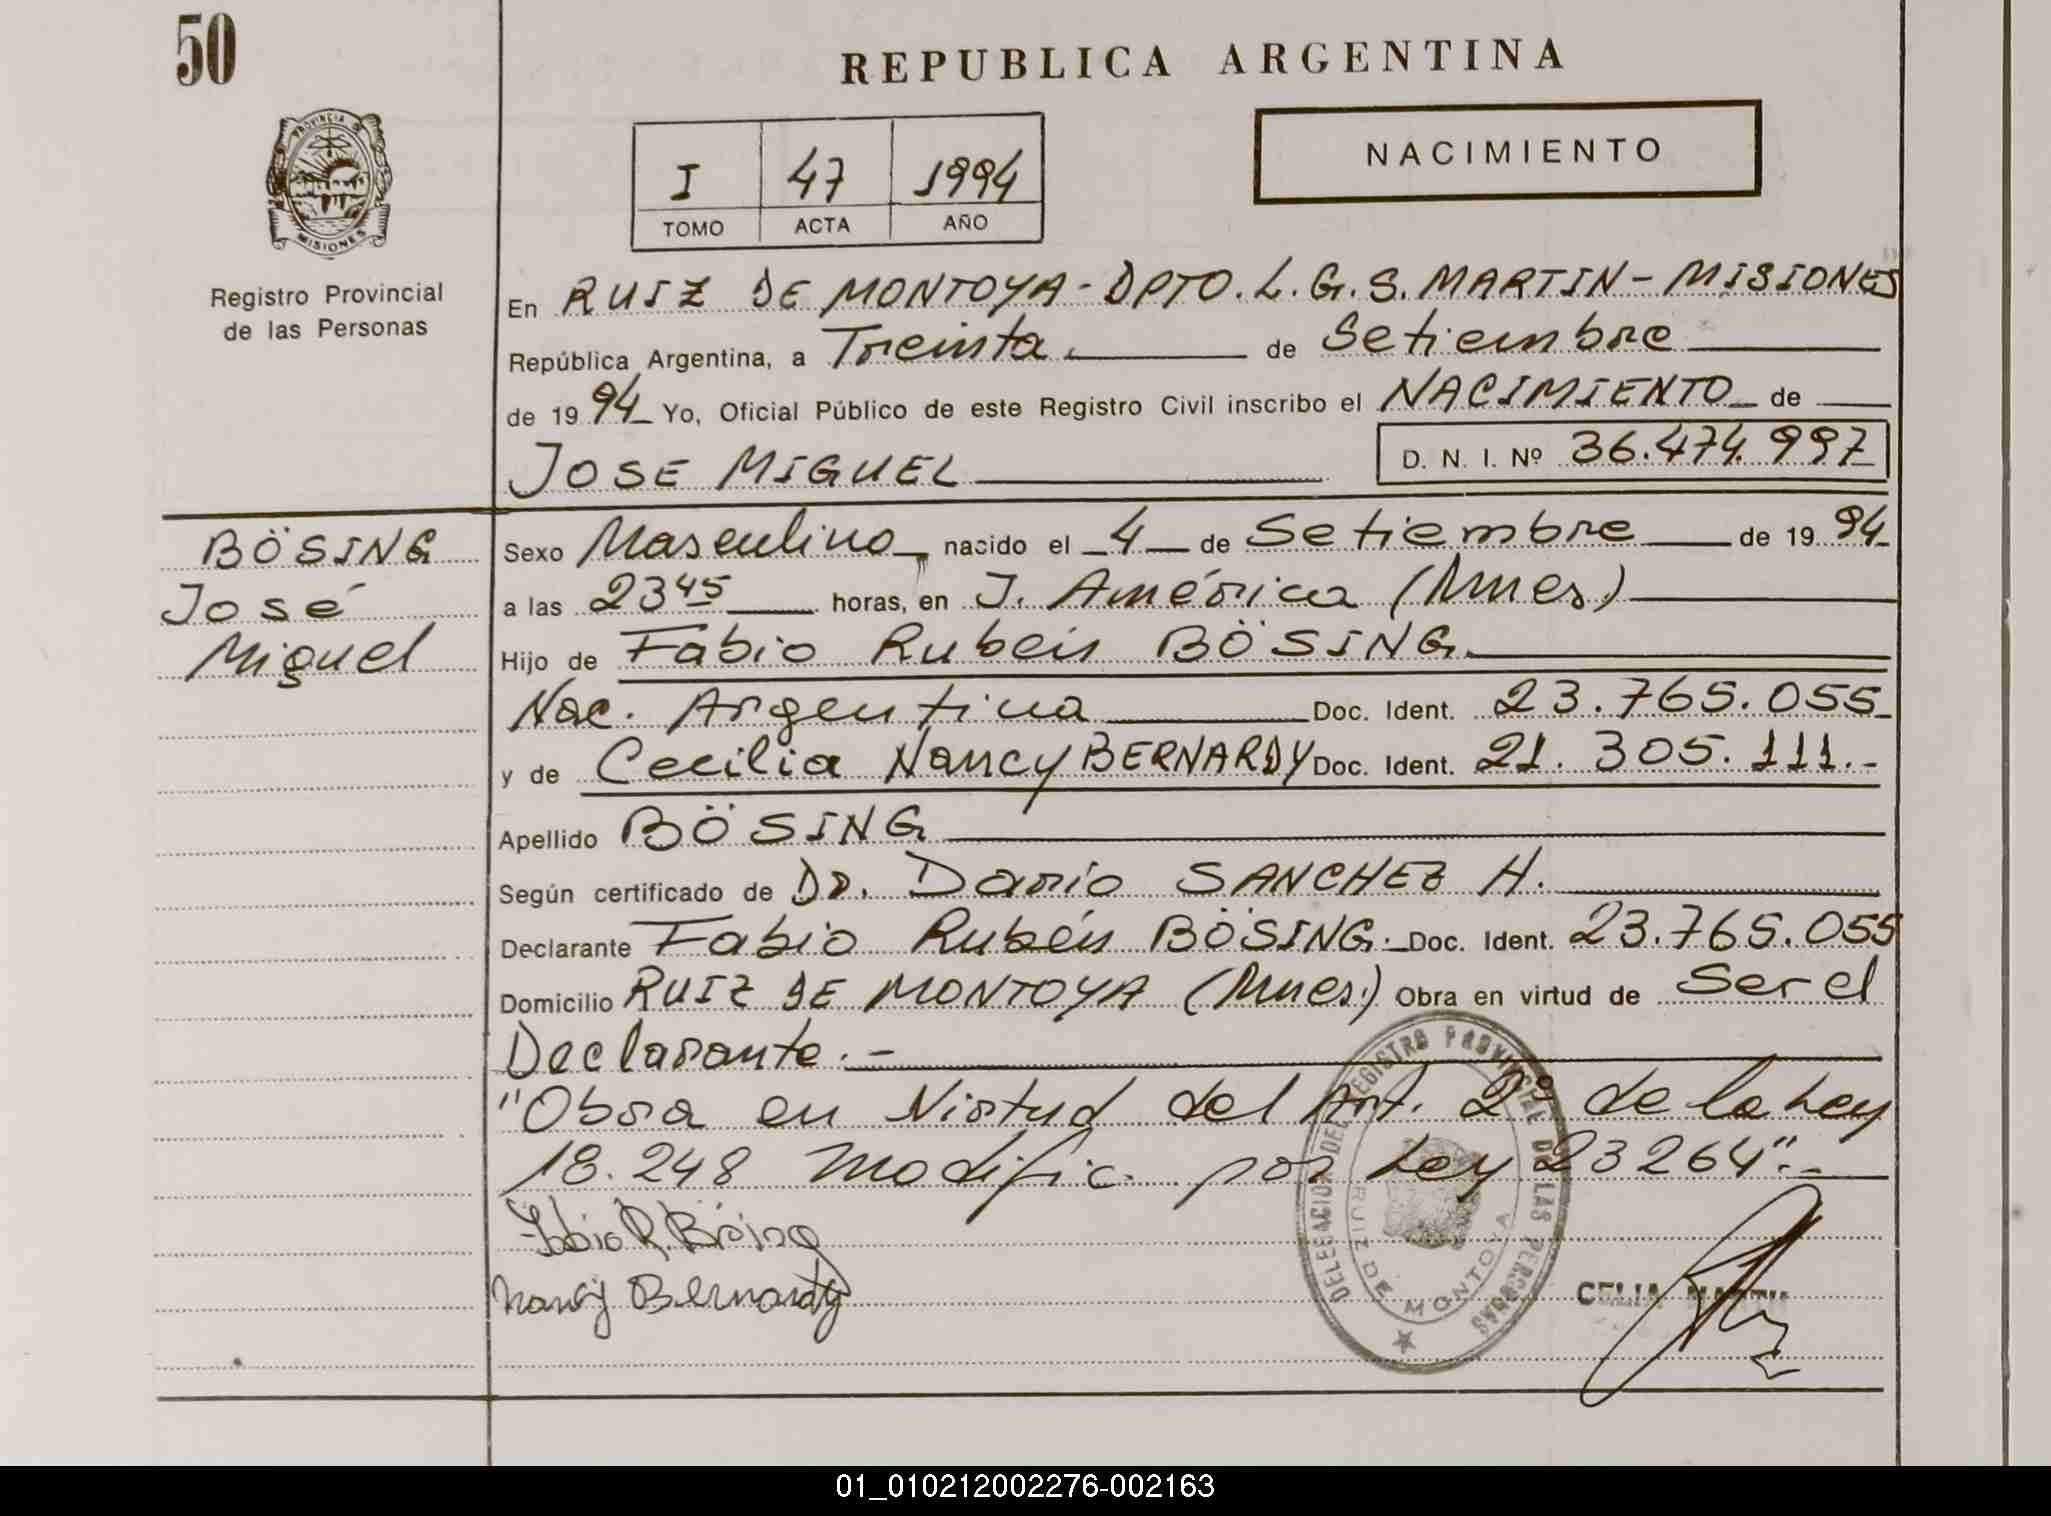 50
REPUBLICA ARGENTINA
PROVINCIA D
MISIONES
Registro Provincial
de las Personas
I 47 1994
TOMO ACTA AÑO
NACIMIENTO
En RUIZ DE MONTOYA - DPTO. L. G. S. MARTIN - MISIONES
República Argentina, a Treinta de Setiembre
de 1994 Yo, Oficial Público de este Registro Civil inscribo el NACIMIENTO de
JOSE MIGUEL D. N. I. Nº 36.474.997
BÖSING
José
Miguel
Sexo Masculino nacido el 4 de Setiembre de 1994
a las 23 45 horas, en J. América (Mnes)
Hijo de Fabio Rubén BÖSING
Nac. Argentina Doc. Ident. 23.765.055
y de Cecilia Nancy BERNARDY Doc. Ident. 21.305.111.-
Apellido BÖSING
Según certificado de Dr. Dario SANCHEZ H.
Declarante Fabio Rubén BÖSING. Doc. Ident. 23.765.055
Domicilio RUIZ DE MONTOYA (Mnes.) Obra en virtud de Ser el
Declarante.-
"Obra en Virtud del Art. 2º de la Ley
18.248 Modific. por Ley 23264".-
Fabio R. Bösing
Nancy Bernardy
DELEGACION DEL REGISTRO PROVINCIAL DE LAS PERSONAS
RUIZ DE MONTOYA
CELIA
01_010212002276-002163